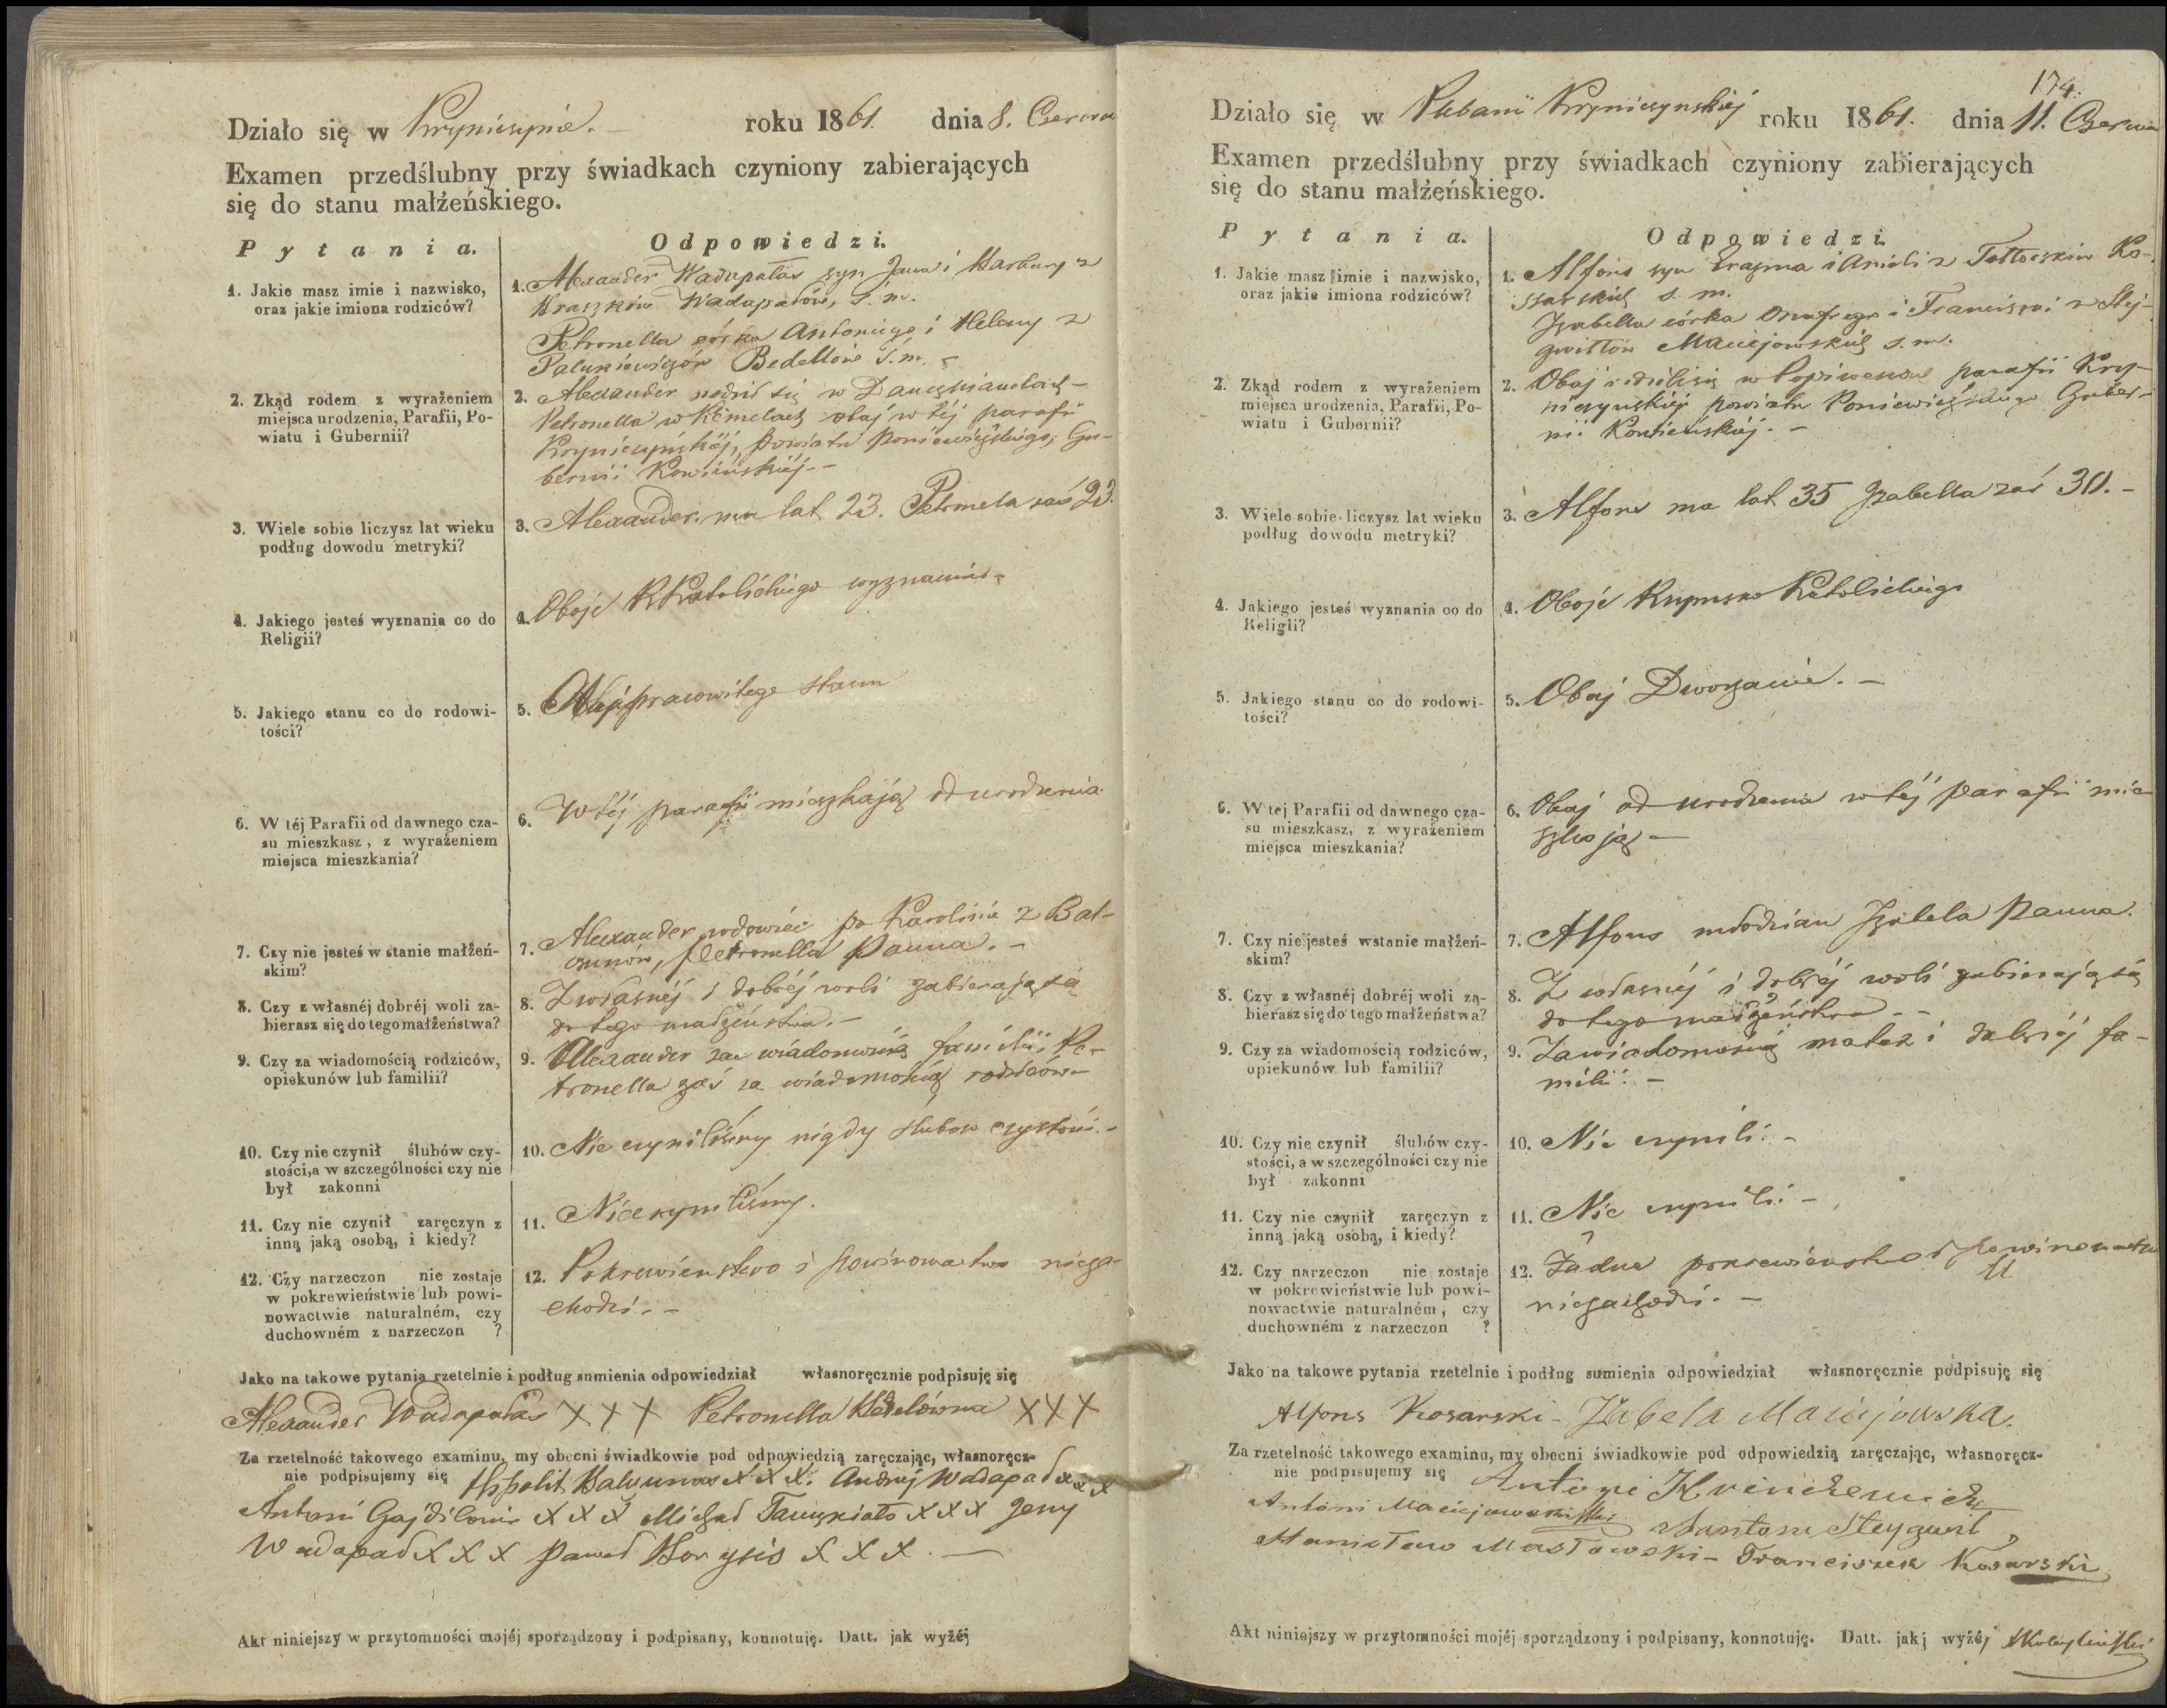 Działo się w Krynicznie. roku 1861. dnia 8. Czerwca
Examen przedślubny przy świadkach czyniony zabierających
się do stanu małżeńskiego.
Pytania. Odpowiedzi.
1. Jakie masz imie i nazwisko,
oraz jakie imiona rodziców?
1. Alexander Wadapalas syn Jana i Barbary z
Wadapalów, s. m.
Petronella córka Antoniego i Heleny z
Bedellów s. m.
2. Zkąd rodem z wyrażeniem
miejsca urodzenia, Parafii, Po-
wiatu i Gubernii?
2. Alexander rodził się w
Petronella w obaj w téj parafii
powiatu Poniewiezkiego, Gu-
bernii Kowieńskiéj. -
3. Wiele sobie liczysz lat wieku
podług dowodu metryki?
3. Alexander ma lat 23. Petronela zaś 23.
4. Jakiego jesteś wyznania co do
Religii?
4. Oboje RKatolickiego wyznania -
5. Jakiego stanu co do rodowi-
tości?
5. pracowitego stanu
6. W téj Parafii od dawnego cza-
su mieszkasz, z wyrażeniem
miejsca mieszkania?
6. W téj parafii mieszkają od urodzenia
7. Czy nie jesteś w stanie małżeń-
skim?
7. Alexander wdowiec po Karolinie z Bal-
czunów, Petronella Panna. -
8. Czy z własnéj dobréj woli za-
bierasz się do tego małżeństwa?
8. Z własnéj i dobréj woli zabierają się
do tego małżeństwa. -
9. Czy za wiadomością rodziców,
opiekunów lub familii?
9. Alexander za wiadomością familii, Pe-
tronella zaś za wiadomością rodziców -
10. Czy nie czynił ślubów czy-
stości, a w szczególności czy nie
był zakonni
10. Nie czyniliśmy nigdy ślubow czystości. -
11. Czy nie czynił zaręczyn z
inną jaką osobą, i kiedy?
11. Nieczyniliśmy.
12. Czy narzeczon nie zostaje
w pokrewieństwie lub powi-
nowactwie naturalném, czy
duchowném z narzeczon ?
12. Pokrewieństwo i powinowactwo nieza-
chodzi. -
Jako na takowe pytania rzetelnie i podług sumienia odpowiedział własnoręcznie podpisuję się
Alexander Wadapalas X X X Petronella Bedelówna X X X
Za rzetelność takowego examinu, my obecni świadkowie pod odpowiedzią zaręczając, własnoręcz-
nie podpisujemy się Hypolit Balczunas X X X. Andrzej Wadapad x x x
Antoni X X X Michał X X X Jerzy
Wadapad X X X Paweł X X X. -
Akt niniejszy w przytomności mojéj sporządzony i podpisany, konnotuję. Datt. jak wyżéj
174.
Działo się w Plebanii Krynicznskiéj roku 1861. dnia 11. Czerwca
Examen przedślubny przy świadkach czyniony zabierających
się do stanu małżeńskiego.
Pytania. Odpowiedzi.
1. Jakie masz imie i nazwisko,
oraz jakie imiona rodziców?
1. Alfons syn Erazma i Anieli z Ko-
sarskich s. m.
Izabella córka Onufrego i Franciszki z Stej-
gwiłłów Maciejowskich s. m.
2. Zkąd rodem z wyrażeniem
miejsca urodzenia, Parafii, Po-
wiatu i Gubernii?
2. Obaj rodzili się w parafii Kry-
powiatu Poniewiezkiego Guber-
nii Kowieńskiéj. -
3. Wiele sobie liczysz lat wieku
podług dowodu metryki?
3. Alfons ma lat 35 Izabella zaś 30. -
4. Jakiego jesteś wyznania co do
Religii?
4. Oboje Rzymsko Katolickiego
5. Jakiego stanu co do rodowi-
tości?
5. Obaj Dworzanie. -
6. W tej Parafii od dawnego cza-
su mieszkasz, z wyrażeniem
miejsca mieszkania?
6. Obaj od urodzenia w téj parafii mie-
szkają -
7. Czy nie jesteś wstanie małżeń-
skim?
7. Alfons młodzian Izabela Panna.
8. Czy z własnéj dobréj woli za-
bierasz się do tego małżeństwa?
8. Z własnéj i dobréj woli zabierają się
do tego małżeństwa. -
9. Czy za wiadomością rodziców,
opiekunów lub familii?
9. Za wiadomością matek i dalszéj fa-
milii. -
10. Czy nie czynił ślubów czy-
stości, a w szczególności czy nie
był zakonni
10. Nie czynili. -
11. Czy nie czynił zaręczyn z
inną jaką osobą, i kiedy?
11. Nie czynili. -
12. Czy narzeczon nie zostaje
w pokrewieństwie lub powi-
nowactwie naturalném, czy
duchowném z narzeczon ?
12. Żadne pokrewieństwo i powinowactwo
niezachodzi. -
Jako na takowe pytania rzetelnie i podług sumienia odpowiedział własnoręcznie podpisuję się
Alfons Kosarski - Izabela Maciejowska.
Za rzetelność takowego examinu, my obecni świadkowie pod odpowiedzią zaręczając, własnoręcz-
nie podpisujemy się Antoni
Antoni Maciejowski Steygwił
Stanisław Masłowski - Franciszek Kosarski
Akt niniejszy w przytomności mojéj sporządzony i podpisany, konnotuję. Datt. jak wyżéj